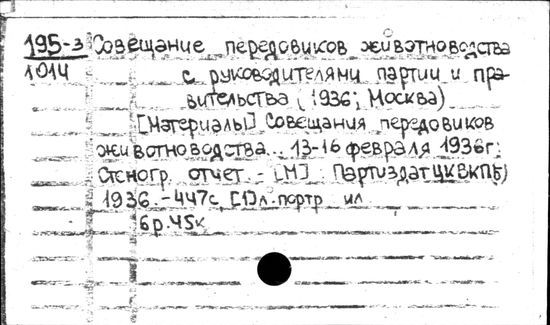 195-3 Совещание передовиков животноводства
1014 с руководителями партии и пра-
вительства (1936; Москва)
[Материалы] Совещания передовиков
животноводства... 13-16 февраля 1936г.
Стеногр. отчет. - [М] Партиздат ЦКВКП(б)
1936. - 447с. [1]л. портр ил
6р.45к